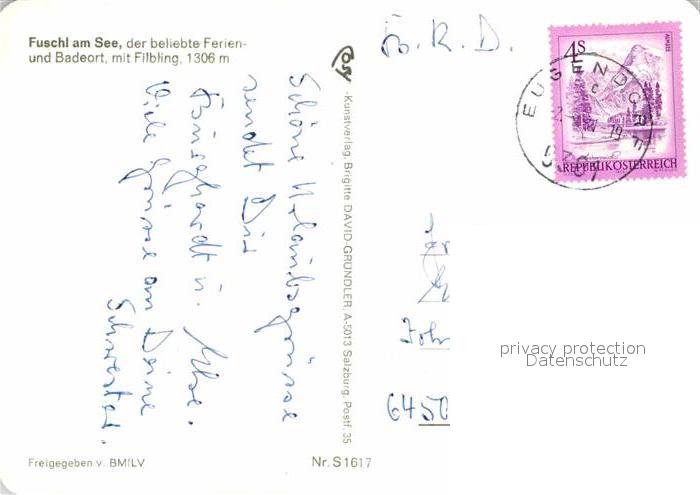 Fuschl am See, der beliebte Ferien-
und Badeort, mit Filbling, 1306 m
Schöne Urlaubsgrüsse
sendet Dir
Burghardt u.
Viele Grüsse an Deine
Schwester.
-Kunstverlag, Brigitte DAVID-GRÜNDLER, A-5013 Salzburg, Postf. 35
B. R. D.
4S
ALMSEE
REPUBLIK ÖSTERREICH
EUGENDORF
6450
privacy protection
Datenschutz
Freigegeben v. BMfLV
Nr. S 1617